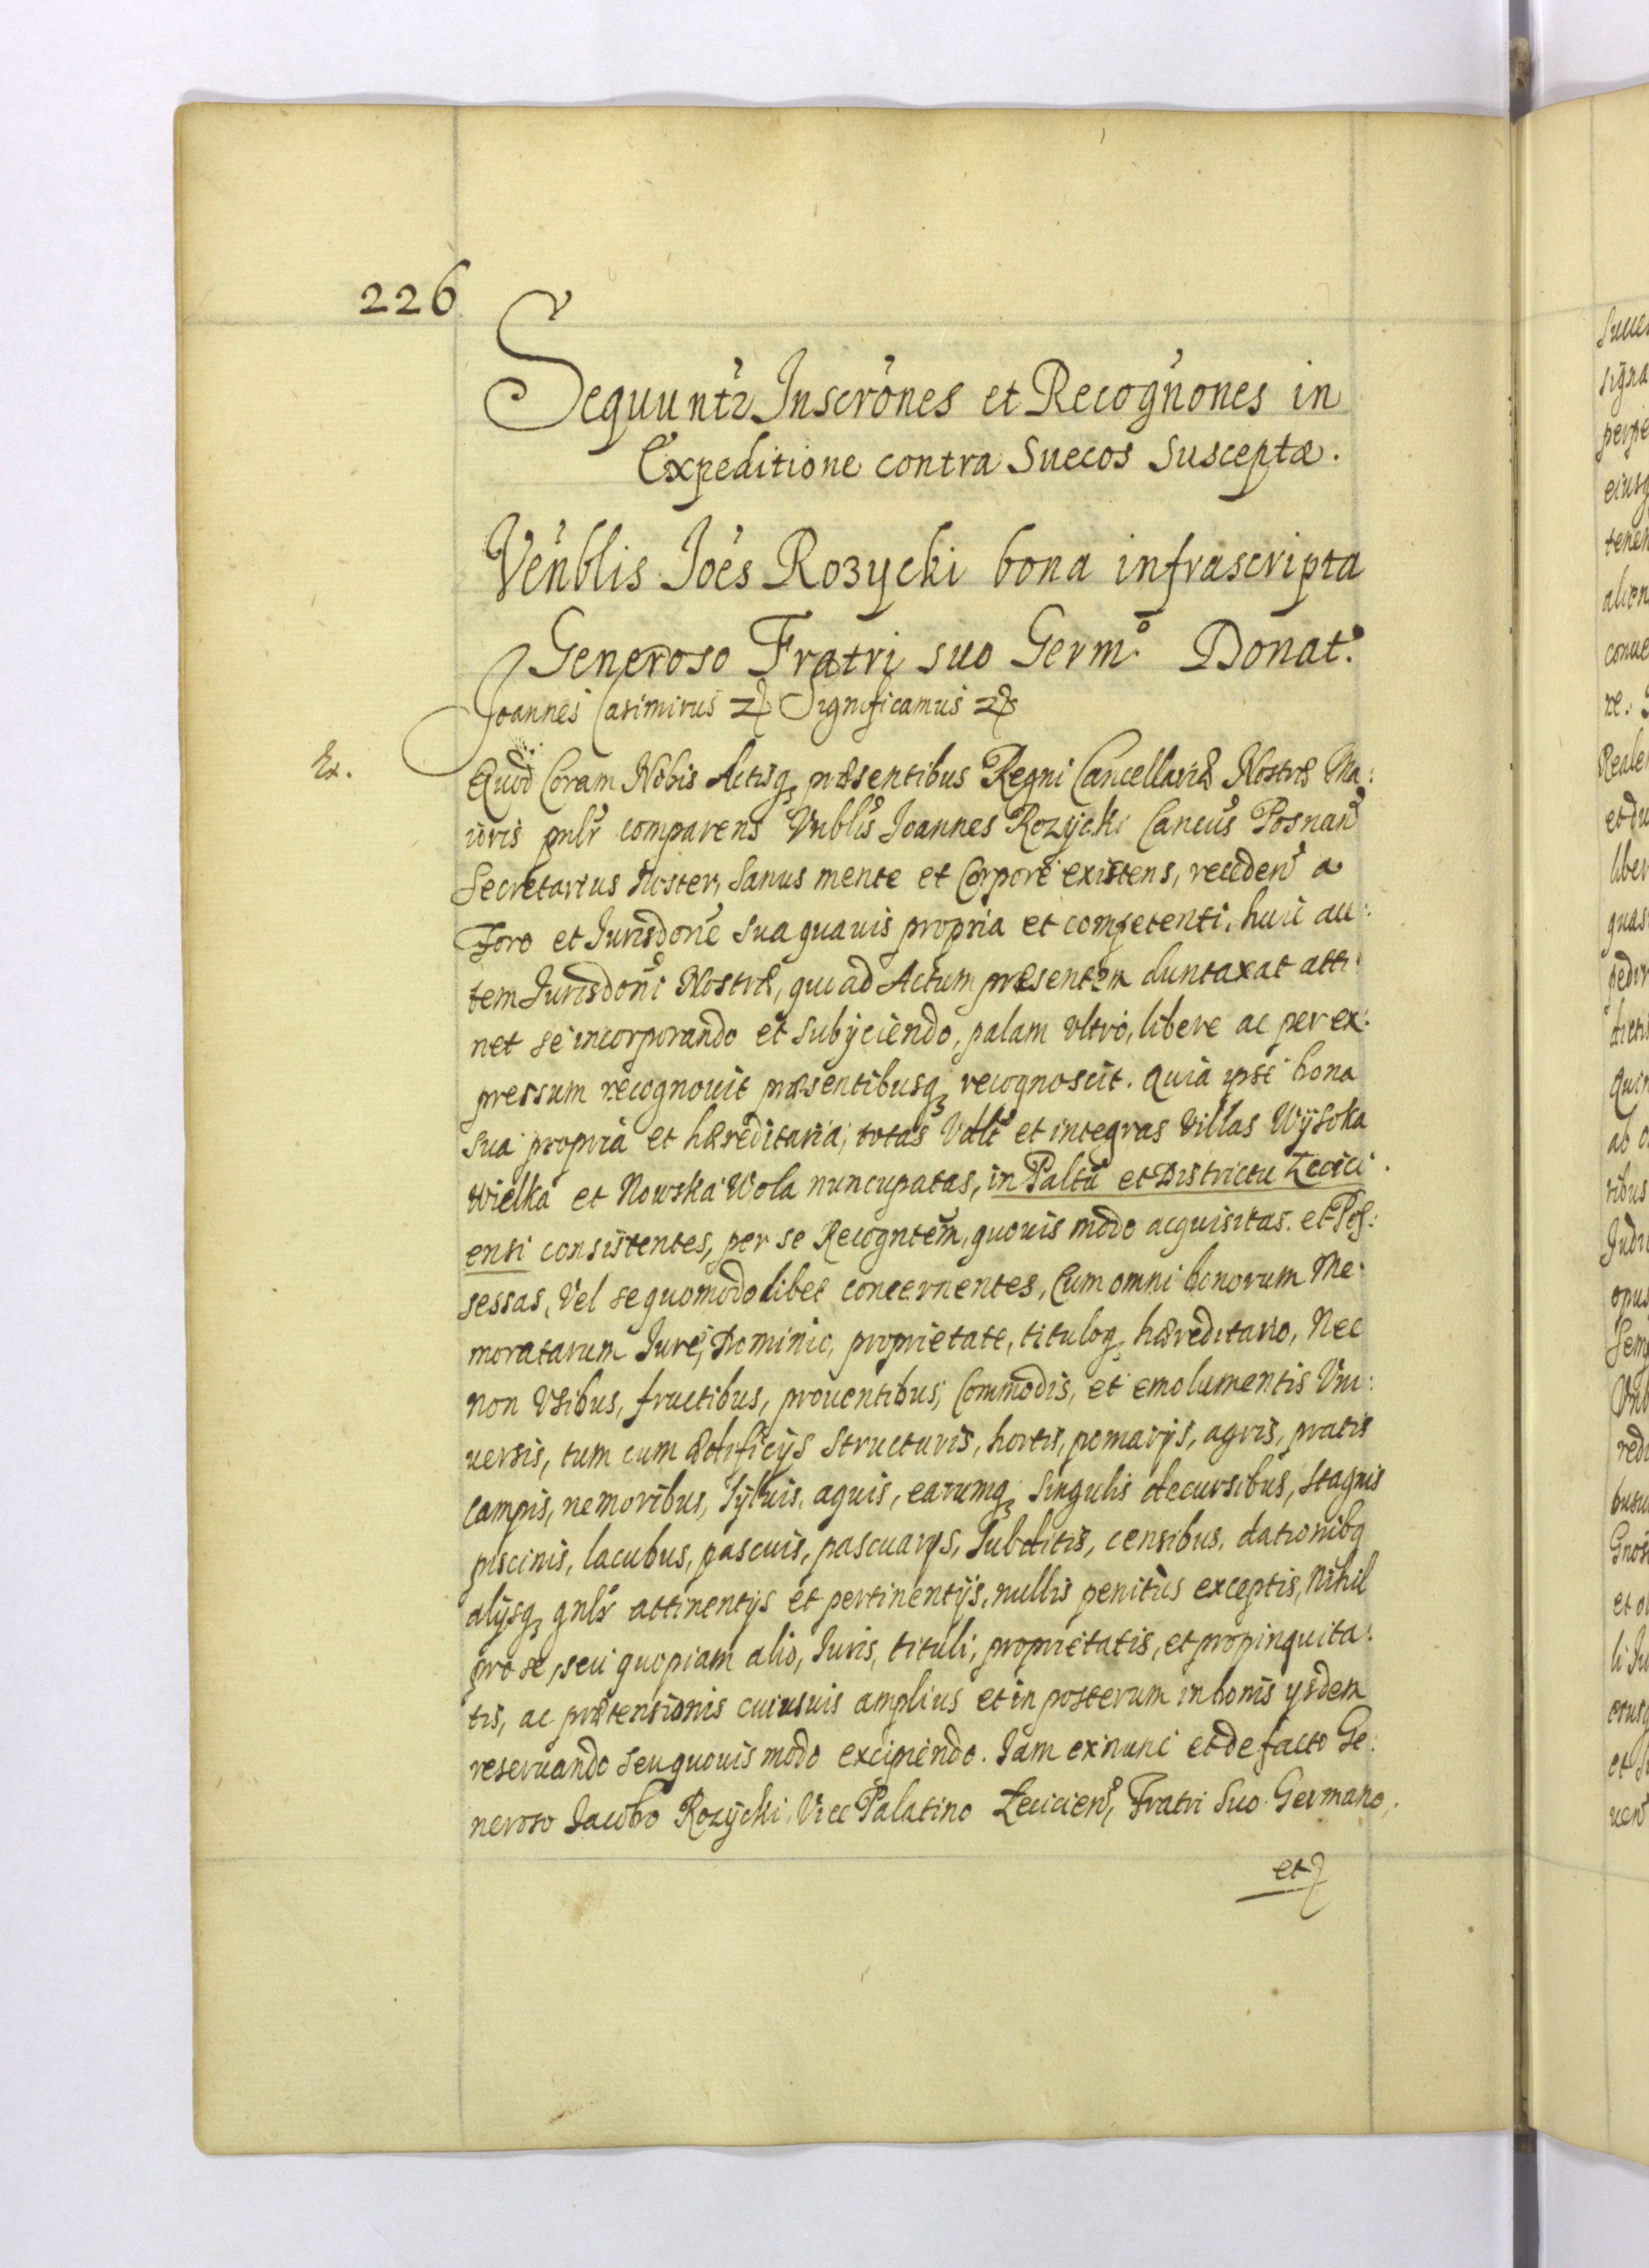 226
Sequuntr Inscrones et Recognones in
Expeditione contra Suecos Susceptæ.
Venblis Joes Rozycki bona infrascripta
Generoso Fratri suo Germo. Donat.
Joannes Casimirus Significamus
Ex.
Quod Coram Nobis Actisq præsentibus Regni Cancellariæ Nostræ Ma:
ioris pnlr comparens Vnblis Joannes Rozycki Cancus Posnan
Secretarius Noster, Sanus mente et Corpore existens, receden a
Foro et Jurisdone sua quauis propria et competenti, huic au:
tem Jurisdoni Nostræ, quoad Actum præsentem duntaxat atti:
net se incorporando et subijciendo, palam vltro, libere ac per ex:
pressum recognouit præsentibusq recognoscit. Quia ipse bona
sua propria et hæreditaria, totas Valt et integras Villas Wysoka
Wielka et Nowska Wola nuncupatas, in Paltu et Districtu Łecici:
ensi consistentes, per se Recogntem, quouis modo acquisitas et Pos:
sessas, Vel se quomodolibet concernentes, Cum omni bonorum Me:
moratarum Jure, Dominio, proprietate, tituloq hæreditario, Nec
non Vsibus, fructibus, prouentibus, Commodis, et emolumentis Vni:
uersis, tum cum ædificijs Structuris, hortis, pomarijs, agris, pratis
campis, nemoribus, Syluis, aquis, earumq Singulis decursibus, Stagnis
piscinis, lacubus, pascuis, pascuarijs, Subditis, censibus, dationibq
alijsq gnlr attinentijs et pertinentijs, nullis penitus exceptis, Nihil
pro se, seu quopiam alio, Juris, tituli, proprietatis, et propinquita:
tis, ac prætensionis cuiusuis amplius et in posterum in bonis ysdem
reseruando seu quouis modo excipiendo. Jam ex nunc et de facto Ge:
neroso Jacobo Rozycki, Vice Palatino Łecicien, Fratri Suo Germano,
et